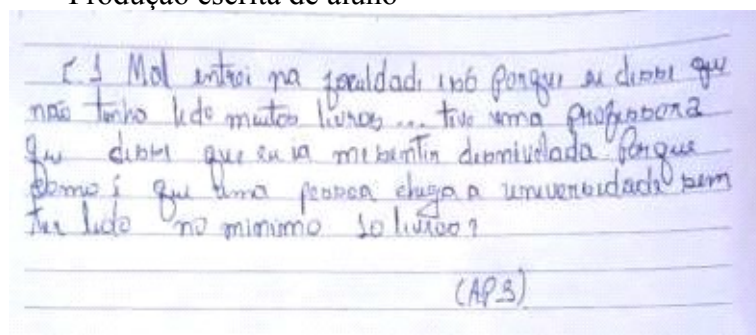 Produção escrita de aluno
[.] Mal entrei na faculdade i só porque eu disse que
não tenho lido muitos livros... tive uma professora
que disse que eu ia me sentir desnivelada. Porque
como é que uma pessoa chega a universidade sem
ter lido no minimo 50 livros?
(AP3)